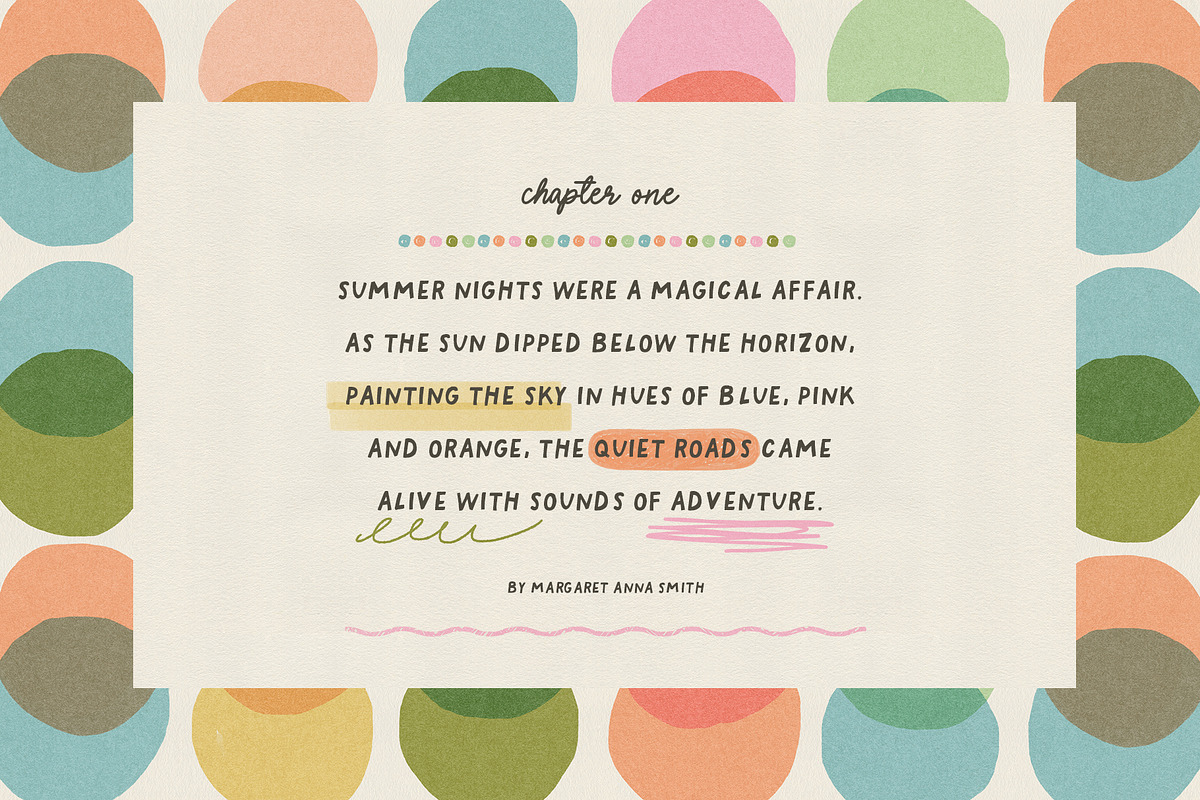 chapter one
SUMMER NIGHTS WERE A MAGICAL AFFAIR.
AS THE SUN DIPPED BELOW THE HORIZON,
PAINTING THE SKY IN HUES OF BLUE, PINK
AND ORANGE, THE QUIET ROADS CAME
ALIVE WITH SOUNDS OF ADVENTURE.
BY MARGARET ANNA SMITH